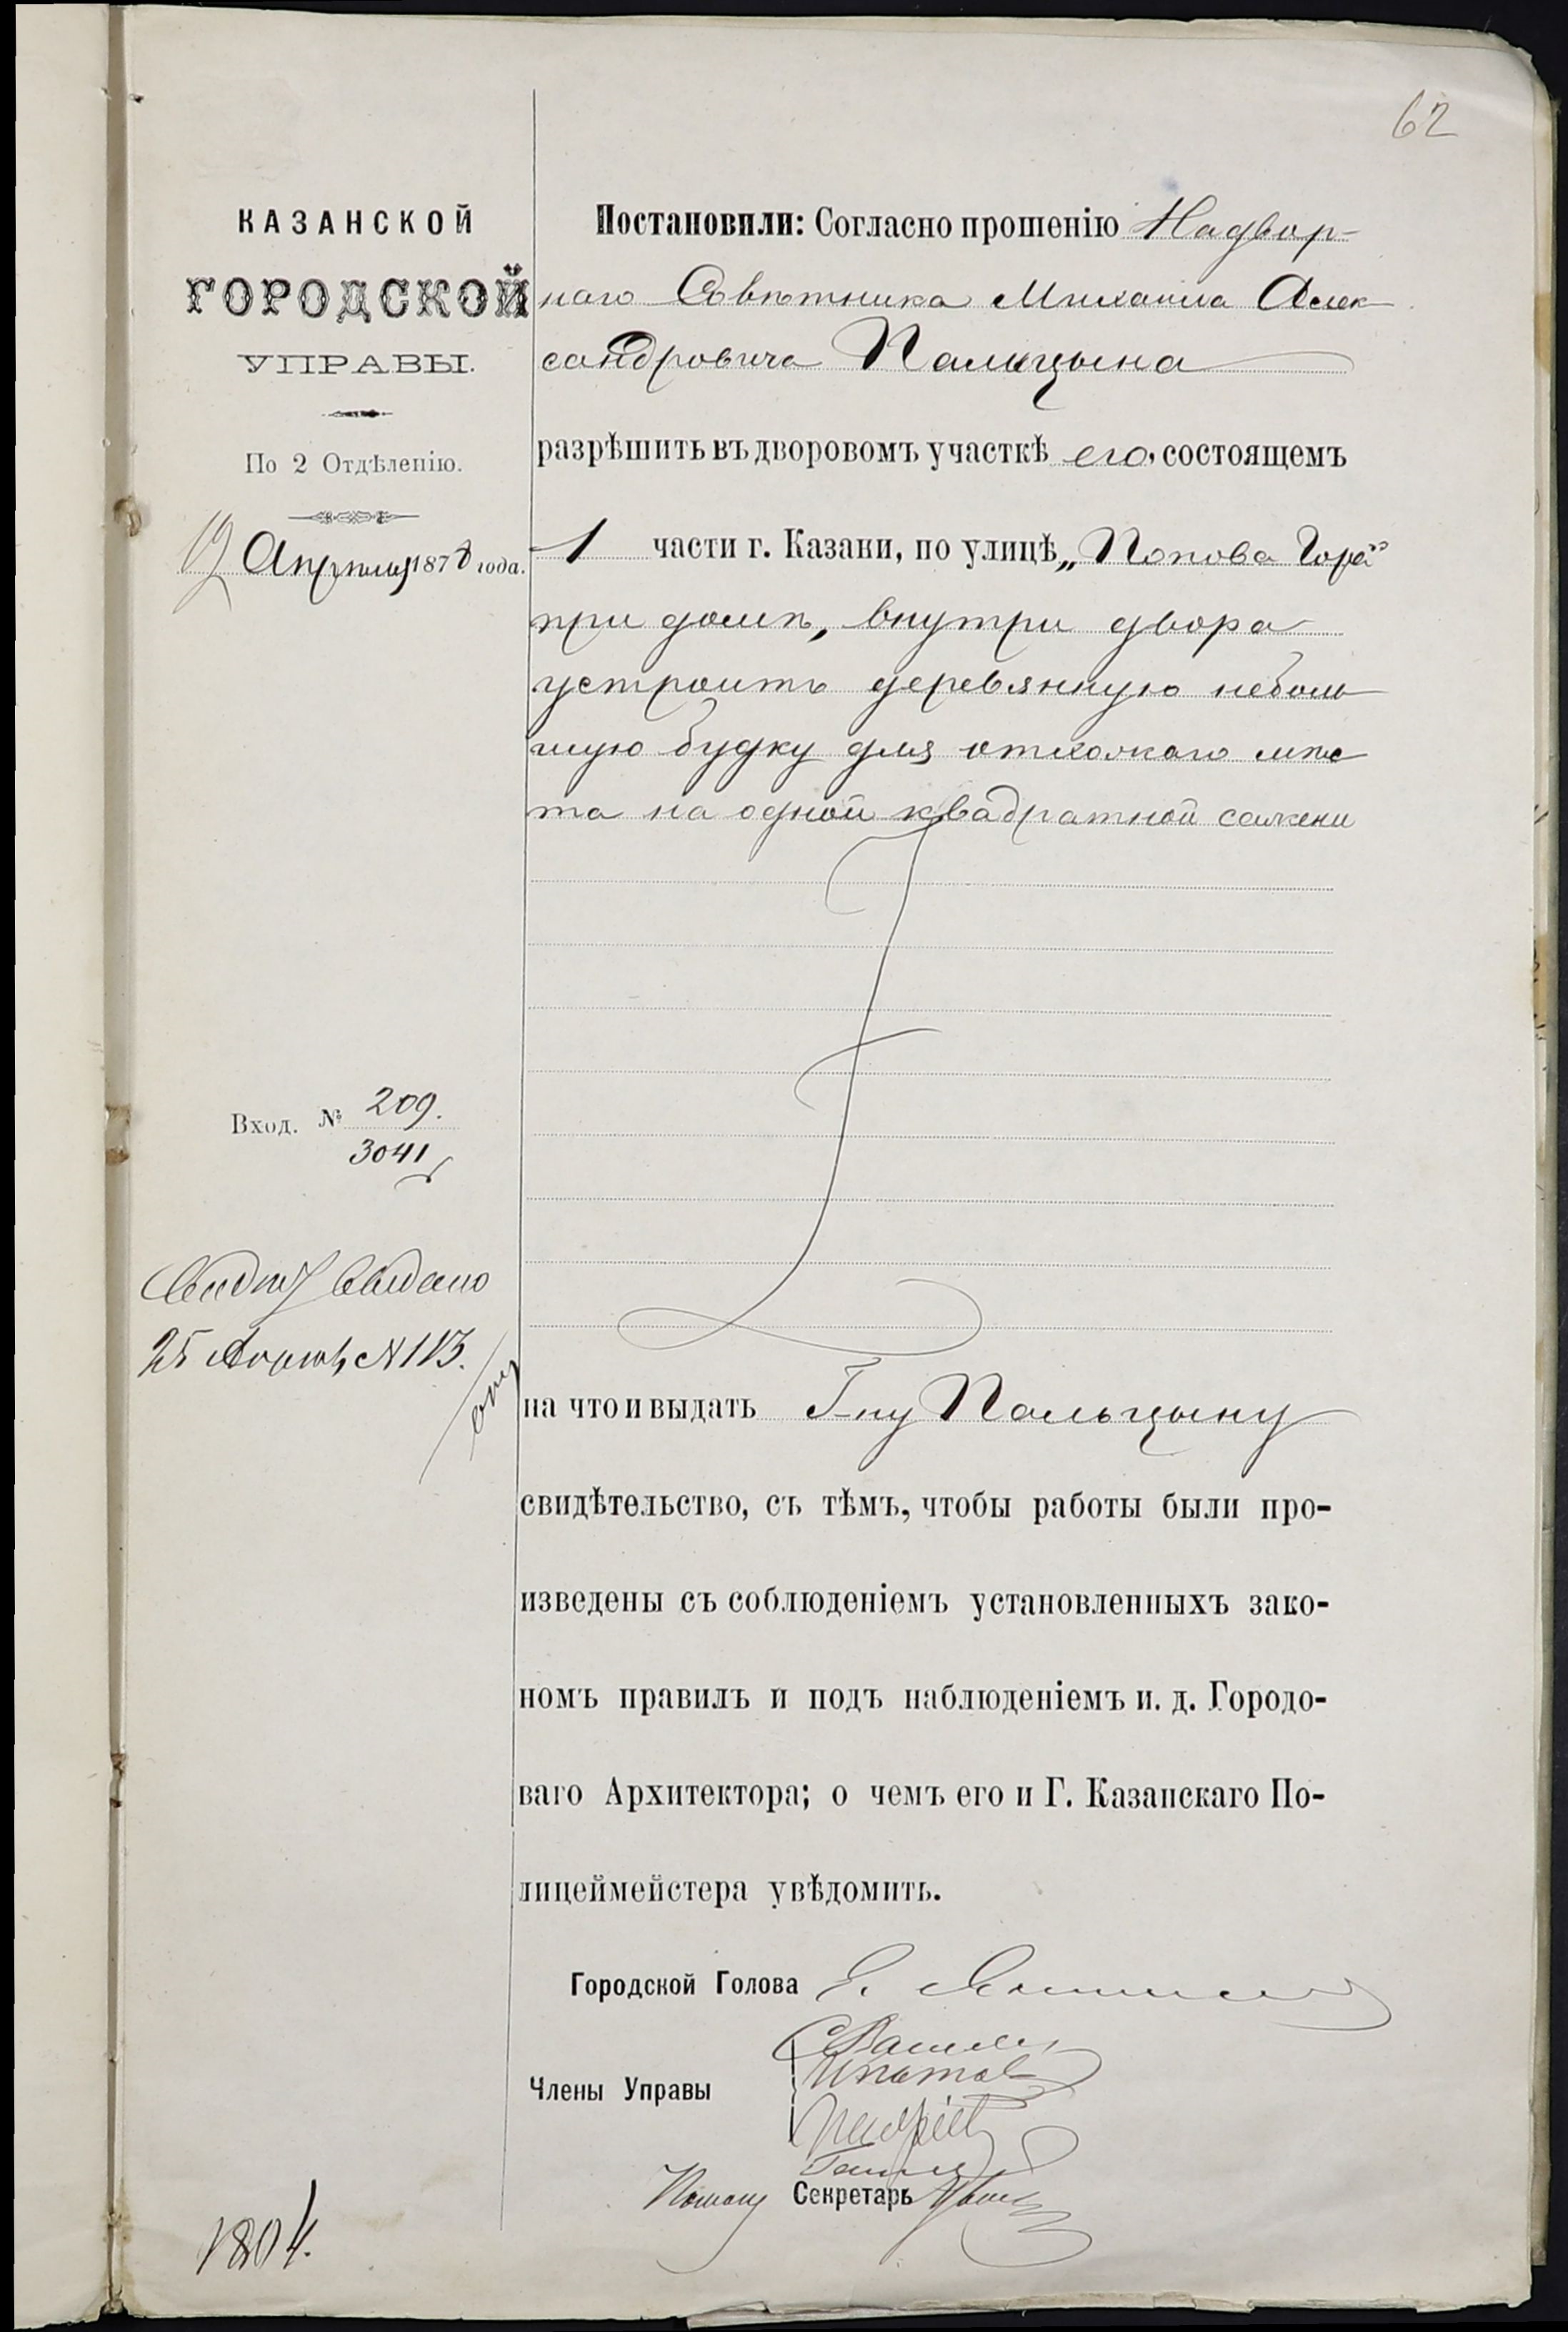 62
КАЗАНСКОЙ
ГОРОДСКОЙ
УПРАВЫ.
По 2 Отдѣленію.
19 Апрѣля 1878 года.
Вход. № 209.
3041
Свидѣт Выдано
25 Апрѣл, № 113.
1804.
Постановили: Согласно прошенію Надвор-
наго Совѣтника Михаила Алек
сандровича Пальцына
разрѣшить въ дворовомъ участкѣ его, состоящемъ
1 части г. Казани, по улицѣ „Попова Гора"
при домѣ, внутри двора
устроить деревянную неболь
шую будку для отхожаго мѣс
та на одной квадратной сажени
на что и выдать Г-ну Пальцыну
свидѣтельство, съ тѣмъ, чтобы работы были про-
изведены съ соблюденіемъ установленныхъ зако-
номъ правилъ и подъ наблюденіемъ и. д. Городо-
ваго Архитектора; о чемъ его и Г. Казанскаго По-
лицеймейстера увѣдомить.
Городской Голова
Члены Управы
Ипатов
Секретарь